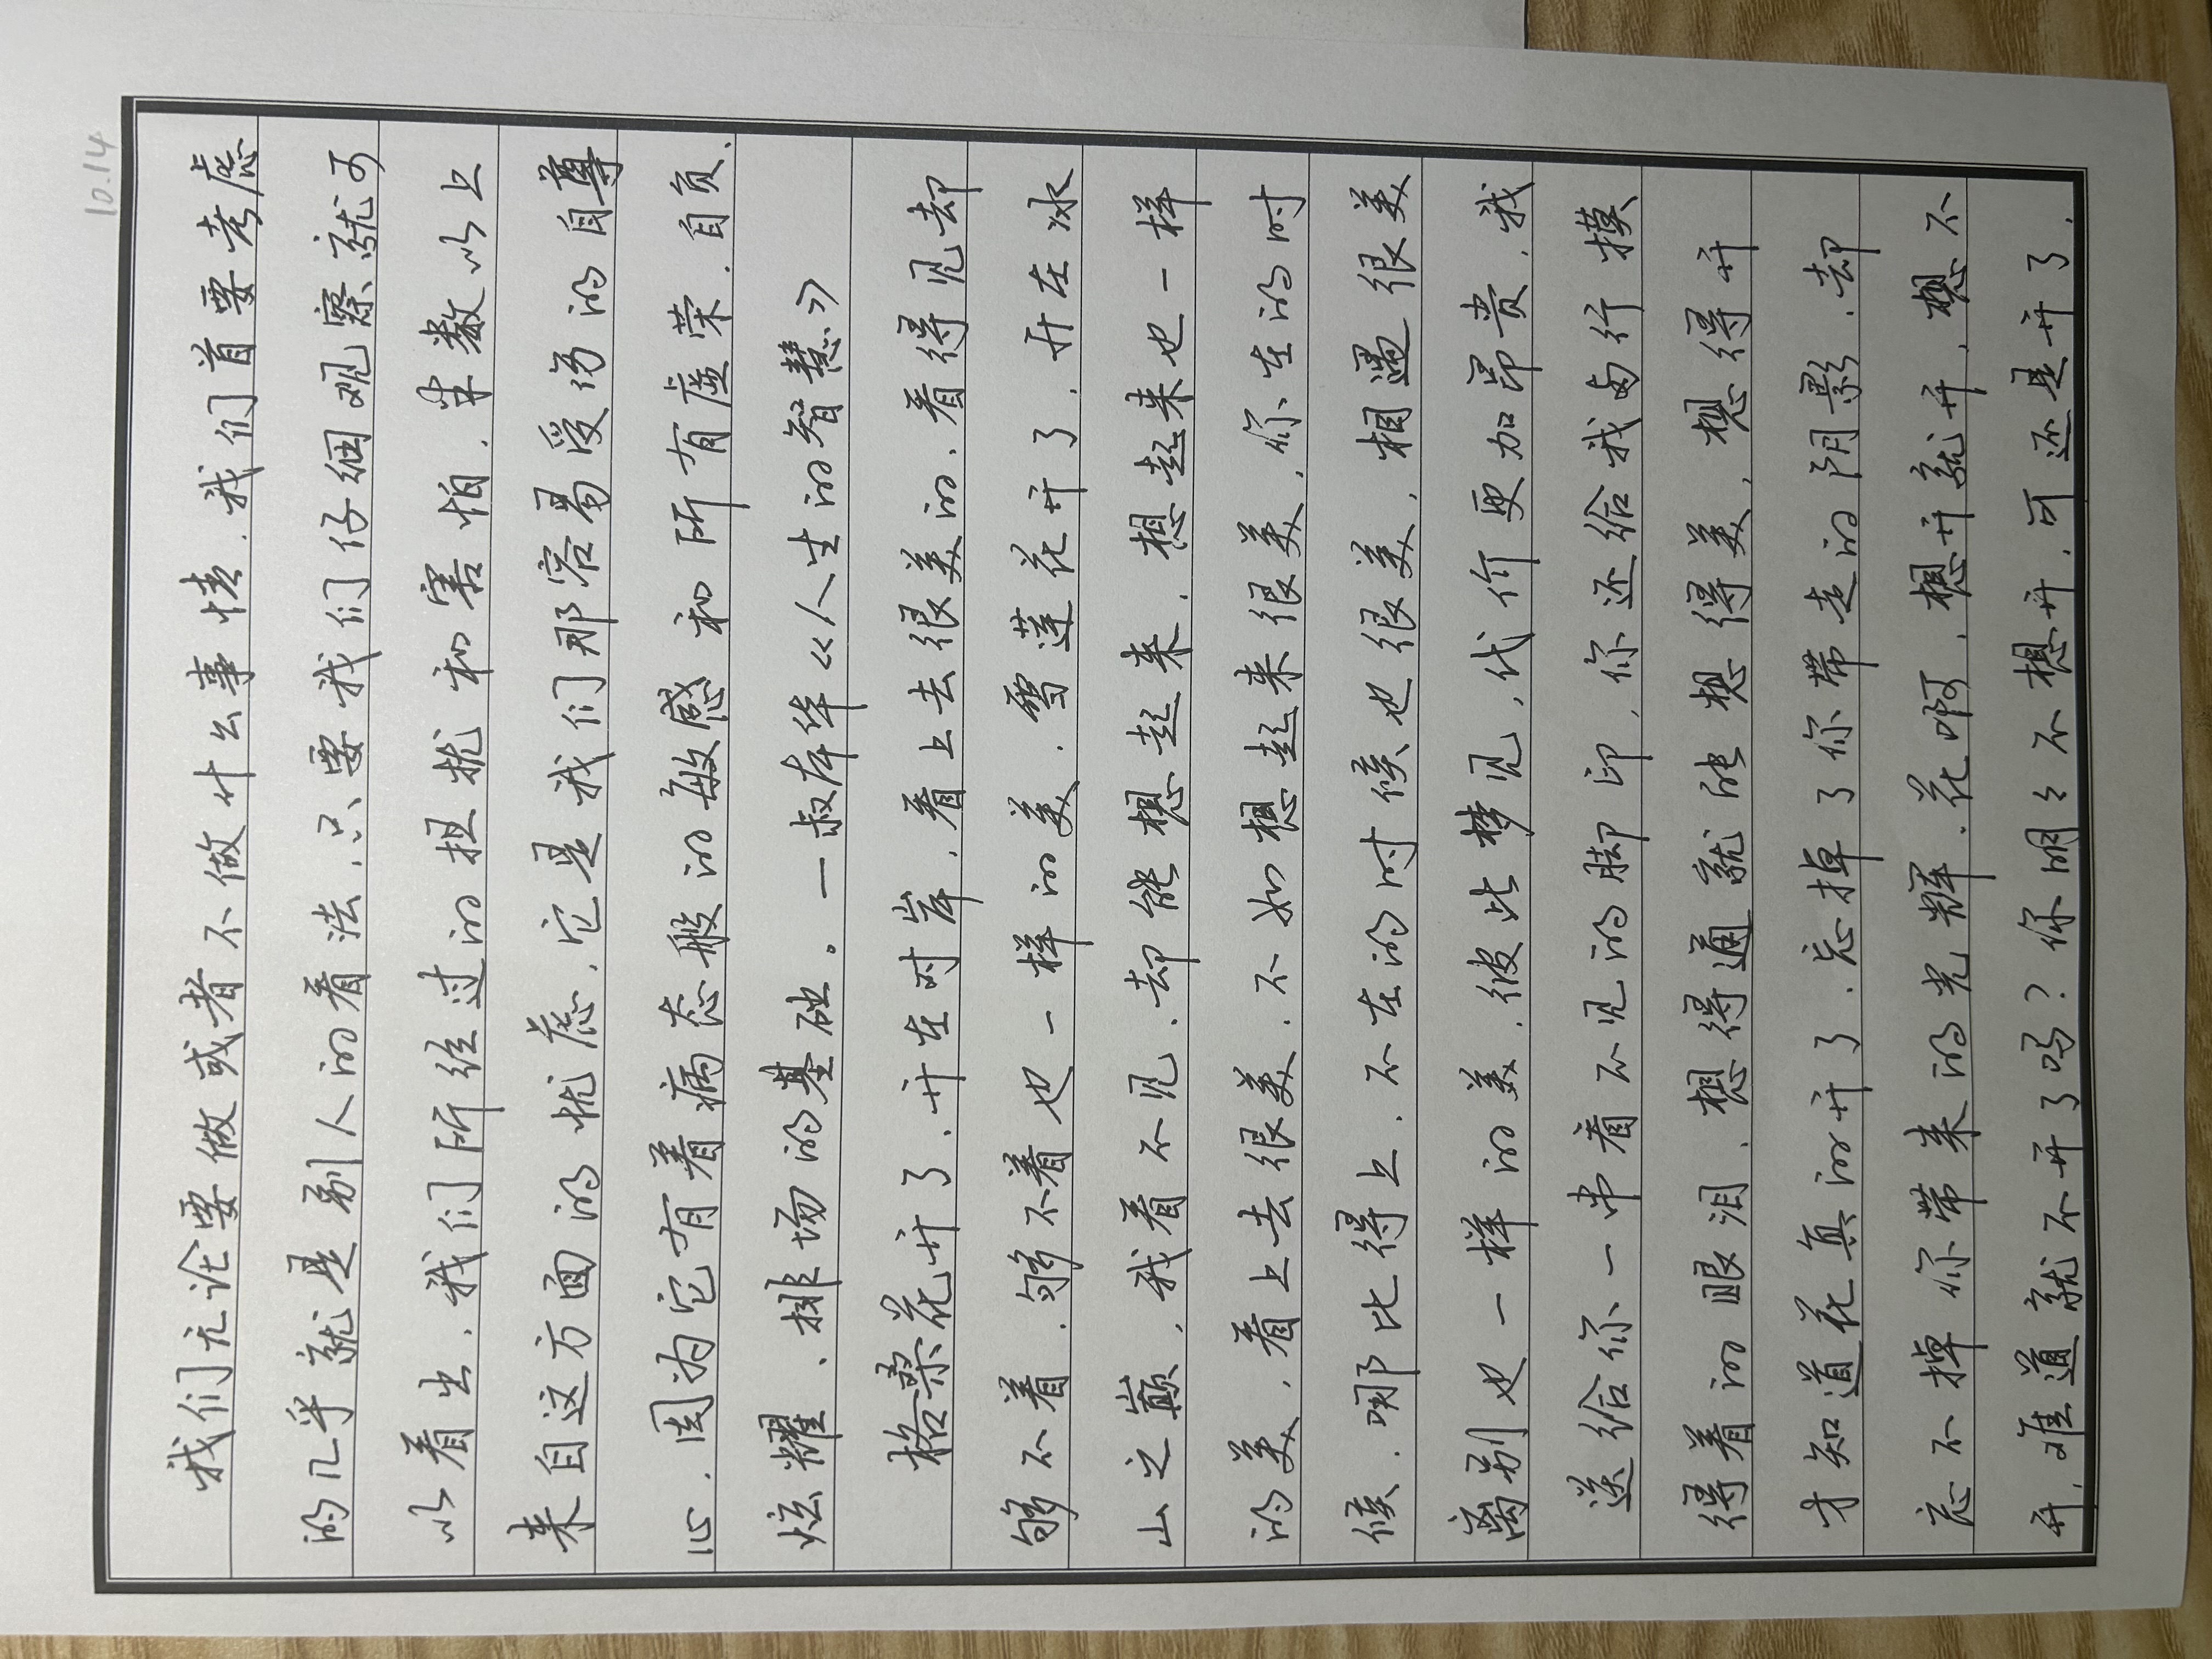 10.14
我们无论要做或者不做什么事情，我们首要考虑
的几乎就是别人的看法，只要我们仔细观察就可
以看出，我们所经过的担扰和害怕，半数以上
来自这方面的忧虑，它是我们那容易受伤的自尊
心，因为它有着病态般的敏感和所有虚荣、自负、
炫耀、排场的基础。—叔本华《人生的智慧》
格桑花开了，开在对岸，看上去很美的，看得见却
够不着，够不着也一样的美，雪莲花开了，开在冰
山之巅，我看不见，却能想起来，想起来也一样
的美，看上去很美，不如想起来很美，你在的时
候，哪比得上，不在的时候也很美，相遇很美
离别也一样的美，彼此梦见，代价更加昂贵，我
送给你一串看不见的脚印，你还给我两行摸
得着的眼泪，想得通就能想得美，想得开
才知道花真的开了，忘掉了你带走的阴影，却
忘不掉你带来的光辉，花啊，想开就开，想不
开，难道就不开了吗？你明々不想开，可还是开了，